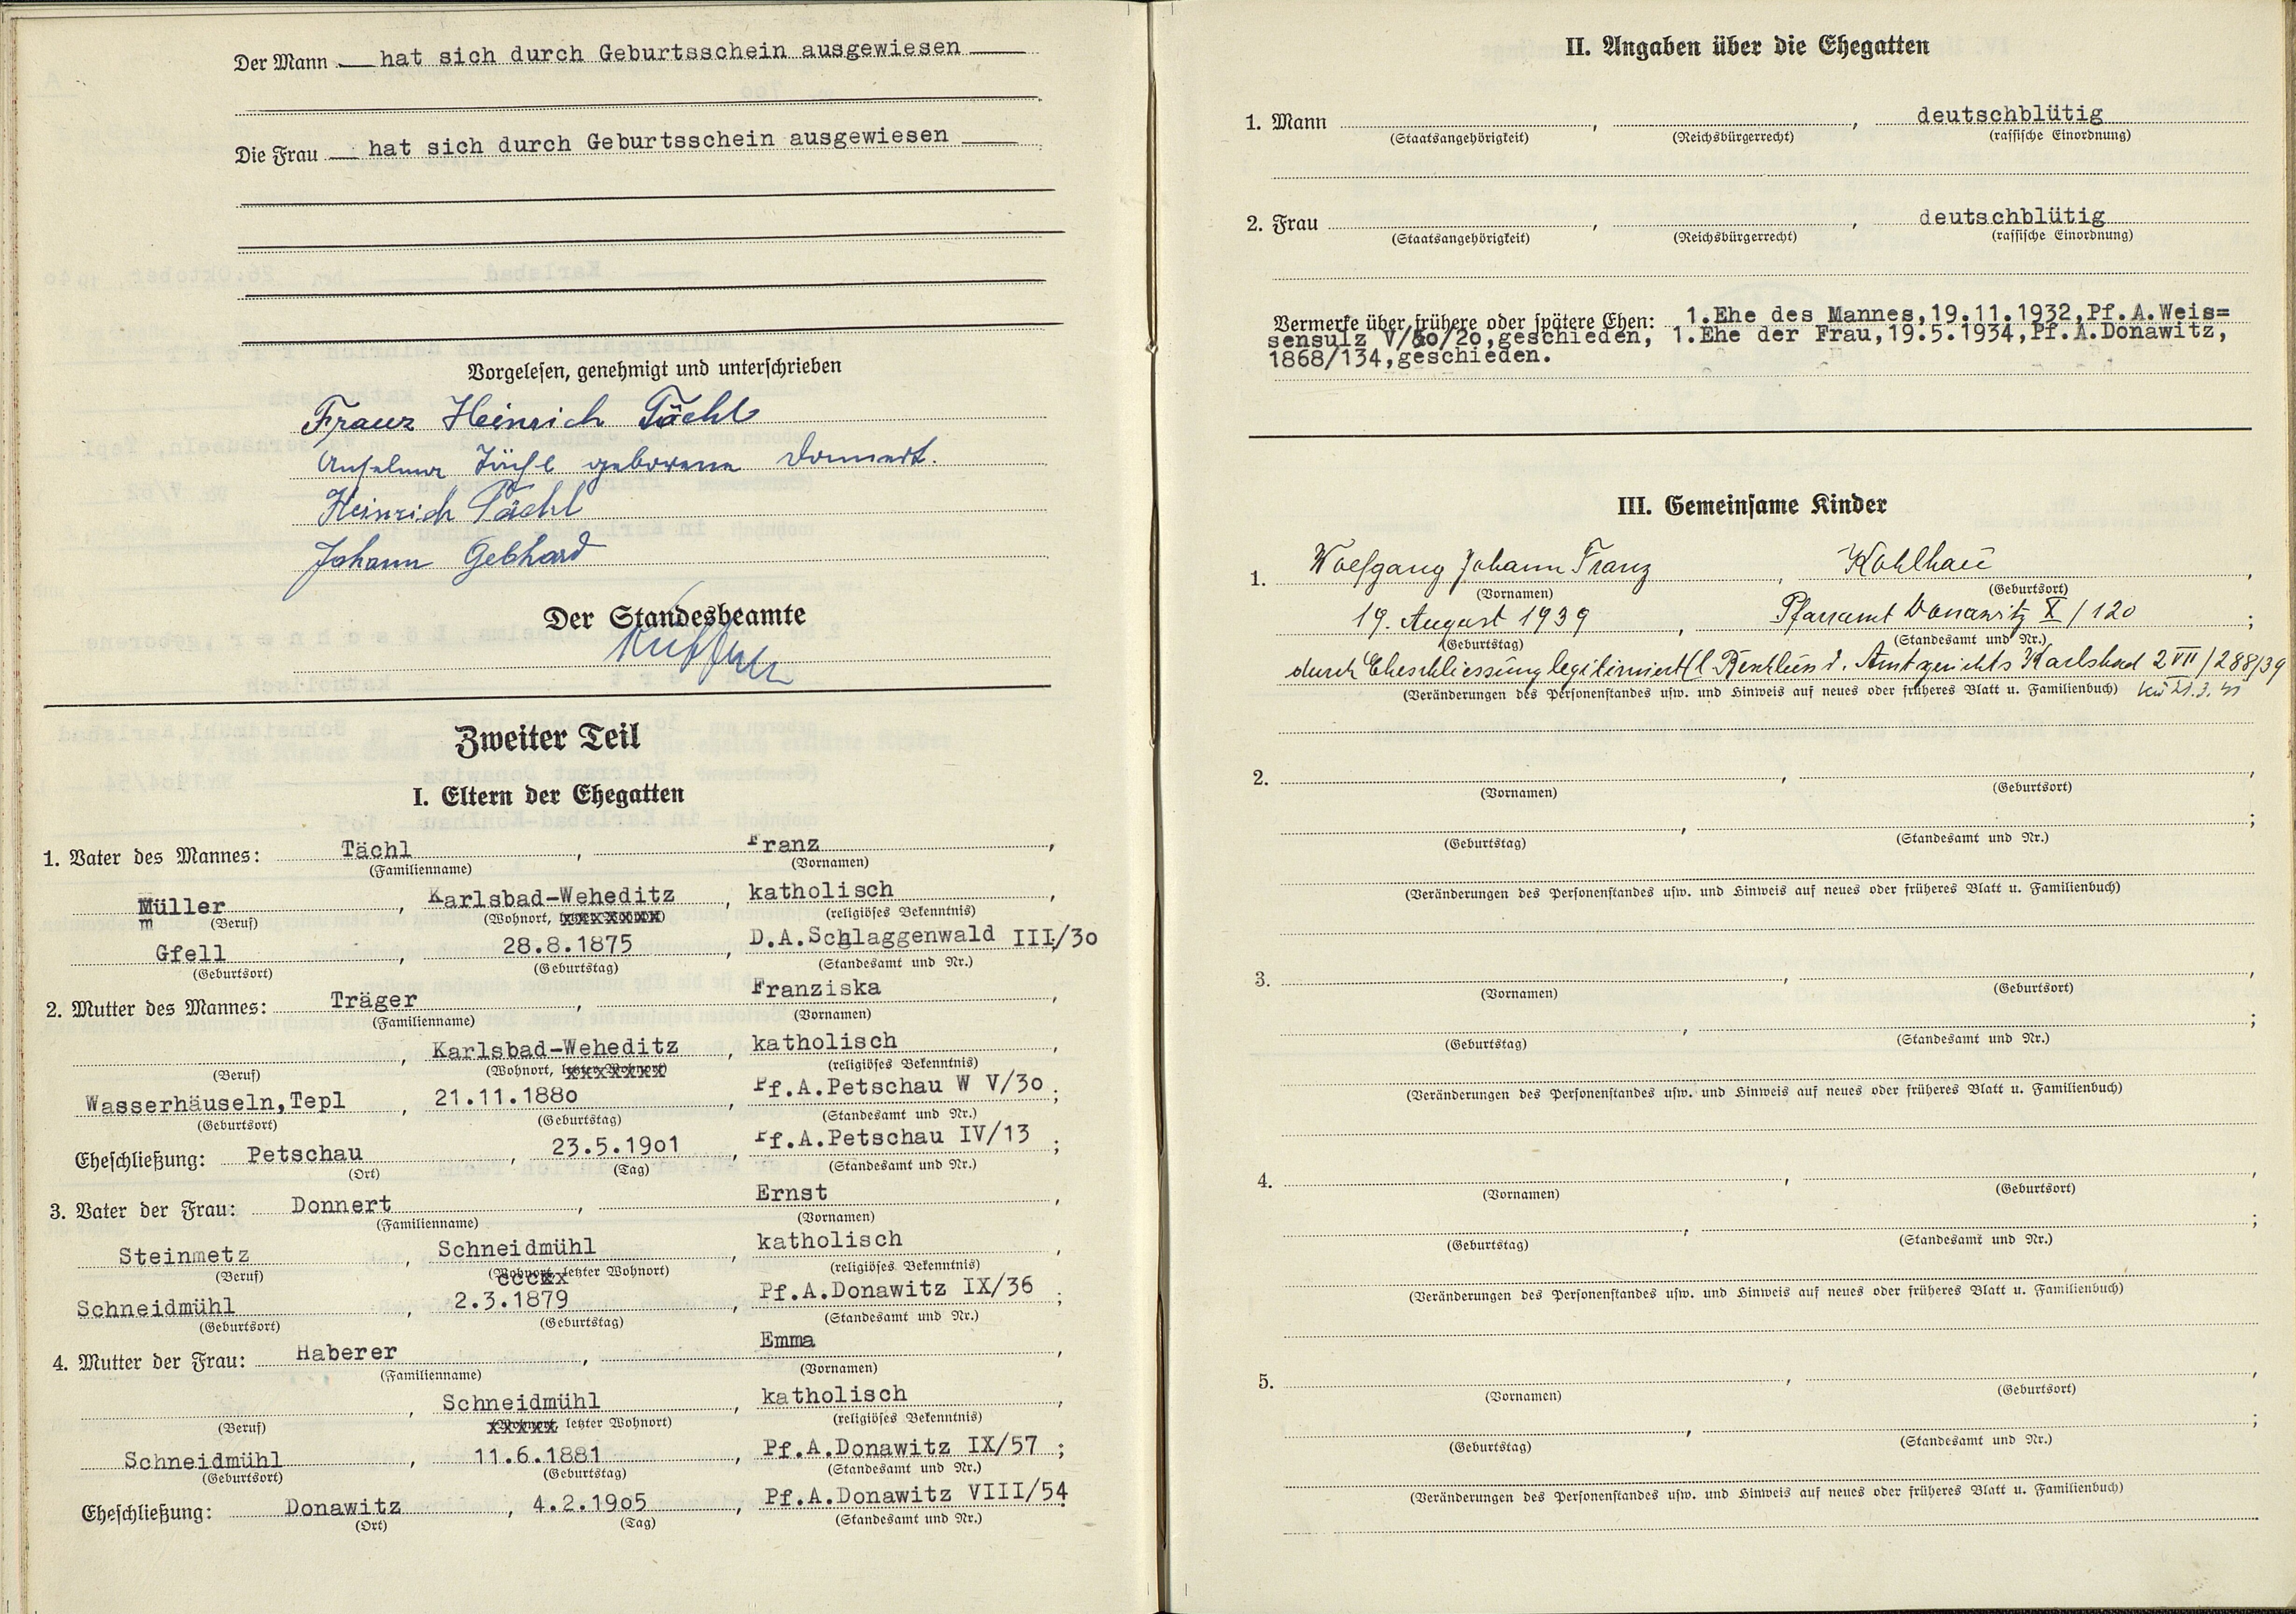 Der Mann — hat sich durch Geburtsschein ausgewiesen —
Die Frau — hat sich durch Geburtsschein ausgewiesen —
Vorgelesen, genehmigt und unterschrieben
Franz Heinrich Tächl
Anselma Tächl geborene Donnert.
Heinrich Tächl
Johann Gebhard
Der Standesbeamte
Zweiter Teil
I. Eltern der Ehegatten
1. Vater des Mannes: Tächl, Franz,
(Familienname) (Vornamen)
Müller, Karlsbad-Weheditz, katholisch,
m (Beruf) (Wohnort, letzter Wohnort) (religiöses Bekenntnis)
Gfell, 28.8.1875, D.A.Schlaggenwald III/3o
(Geburtsort) (Geburtstag) (Standesamt und Nr.)
2. Mutter des Mannes: Träger, Franziska,
(Familienname) (Vornamen)
, Karlsbad-Weheditz, katholisch,
(Beruf) (Wohnort, letzter Wohnort) (religiöses Bekenntnis)
Wasserhäuseln,Tepl, 21.11.188o, Pf.A.Petschau W V/3o;
(Geburtsort) (Geburtstag) (Standesamt und Nr.)
Eheschließung: Petschau, 23.5.19o1, Pf.A.Petschau IV/13;
(Ort) (Tag) (Standesamt und Nr.)
3. Vater der Frau: Donnert, Ernst,
(Familienname) (Vornamen)
Steinmetz, Schneidmühl, katholisch,
(Beruf) (Wohnort, letzter Wohnort) (religiöses Bekenntnis)
Schneidmühl, 2.3.1879, Pf.A.Donawitz IX/36;
(Geburtsort) (Geburtstag) (Standesamt und Nr.)
4. Mutter der Frau: Haberer, Emma,
(Familienname) (Vornamen)
, Schneidmühl, katholisch,
(Beruf) (Wohnort, letzter Wohnort) (religiöses Bekenntnis)
Schneidmühl, 11.6.1881, Pf.A.Donawitz IX/57;
(Geburtsort) (Geburtstag) (Standesamt und Nr.)
Eheschließung: Donawitz, 4.2.19o5, Pf.A.Donawitz VIII/54
(Ort) (Tag) (Standesamt und Nr.)
II. Angaben über die Ehegatten
1. Mann , , deutschblütig
(Staatsangehörigkeit) (Reichsbürgerrecht) (rassische Einordnung)
2. Frau , , deutschblütig
(Staatsangehörigkeit) (Reichsbürgerrecht) (rassische Einordnung)
Vermerke über frühere oder spätere Ehen: 1.Ehe des Mannes,19.11.1932,Pf.A.Weis=
sensulz V/o/2o,geschieden, 1.Ehe der Frau,19.5.1934,Pf.A.Donawitz,
1868/134,geschieden.
III. Gemeinsame Kinder
1. Wolfgang Johann Franz, Kohlhau,
(Vornamen) (Geburtsort)
19. August 1939, Pfarramt Donawitz X/120;
(Geburtstag) (Standesamt und Nr.)
durch Eheschliessung legitimiert d. Amtsgerichts Karlsbad 2 VII/288/39
(Veränderungen des Personenstandes usw. und Hinweis auf neues oder früheres Blatt u. Familienbuch)
2. , ,
(Vornamen) (Geburtsort)
, ;
(Geburtstag) (Standesamt und Nr.)
(Veränderungen des Personenstandes usw. und Hinweis auf neues oder früheres Blatt u. Familienbuch)
3. , ,
(Vornamen) (Geburtsort)
, ;
(Geburtstag) (Standesamt und Nr.)
(Veränderungen des Personenstandes usw. und Hinweis auf neues oder früheres Blatt u. Familienbuch)
4. , ,
(Vornamen) (Geburtsort)
, ;
(Geburtstag) (Standesamt und Nr.)
(Veränderungen des Personenstandes usw. und Hinweis auf neues oder früheres Blatt u. Familienbuch)
5. , ,
(Vornamen) (Geburtsort)
, ;
(Geburtstag) (Standesamt und Nr.)
(Veränderungen des Personenstandes usw. und Hinweis auf neues oder früheres Blatt u. Familienbuch)